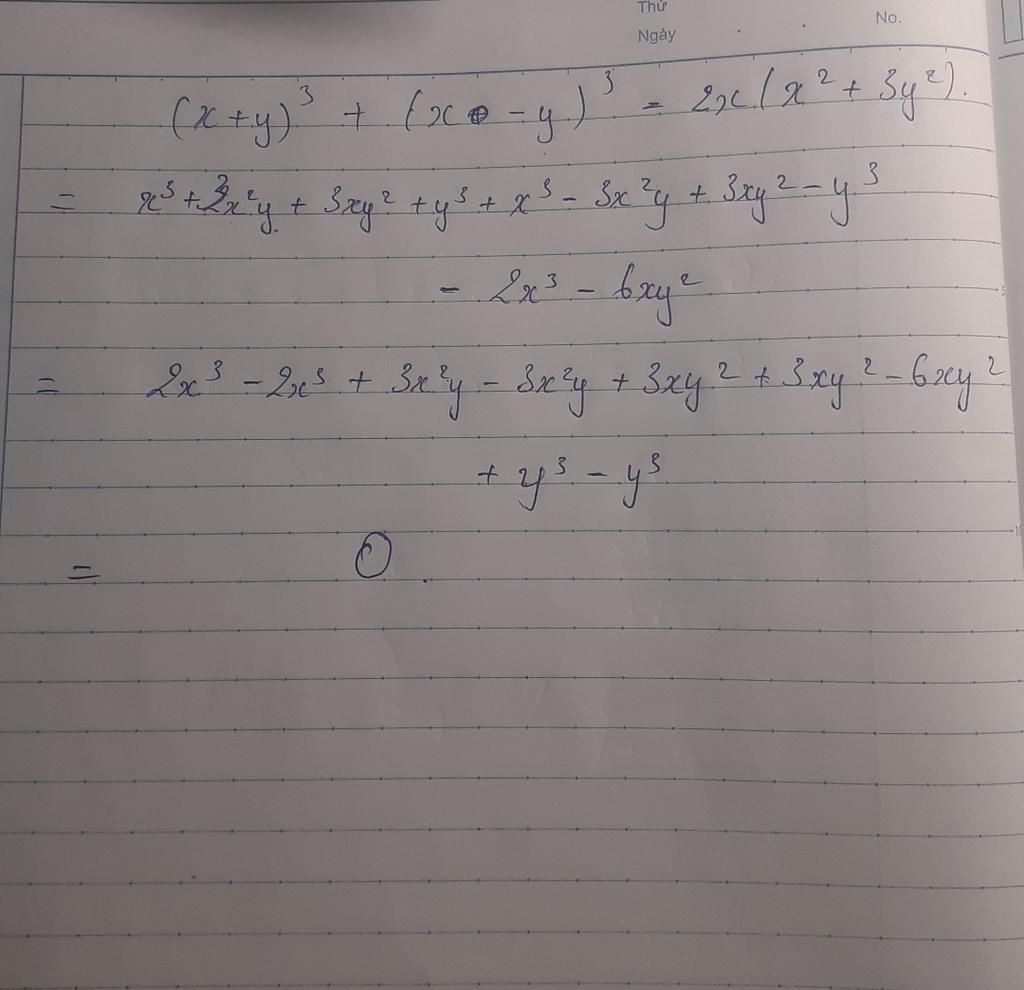 Thứ
No.
Ngày
(x+y)³ + (x - y)³ - 2x(x² + 3y²).
= x³ + 3x²y + 3xy² + y³ + x³ - 3x²y + 3xy² - y³
- 2x³ - 6xy²
= 2x³ - 2x³ + 3x²y - 3x²y + 3xy² + 3xy² - 6xy²
+ y³ - y³
= 0.